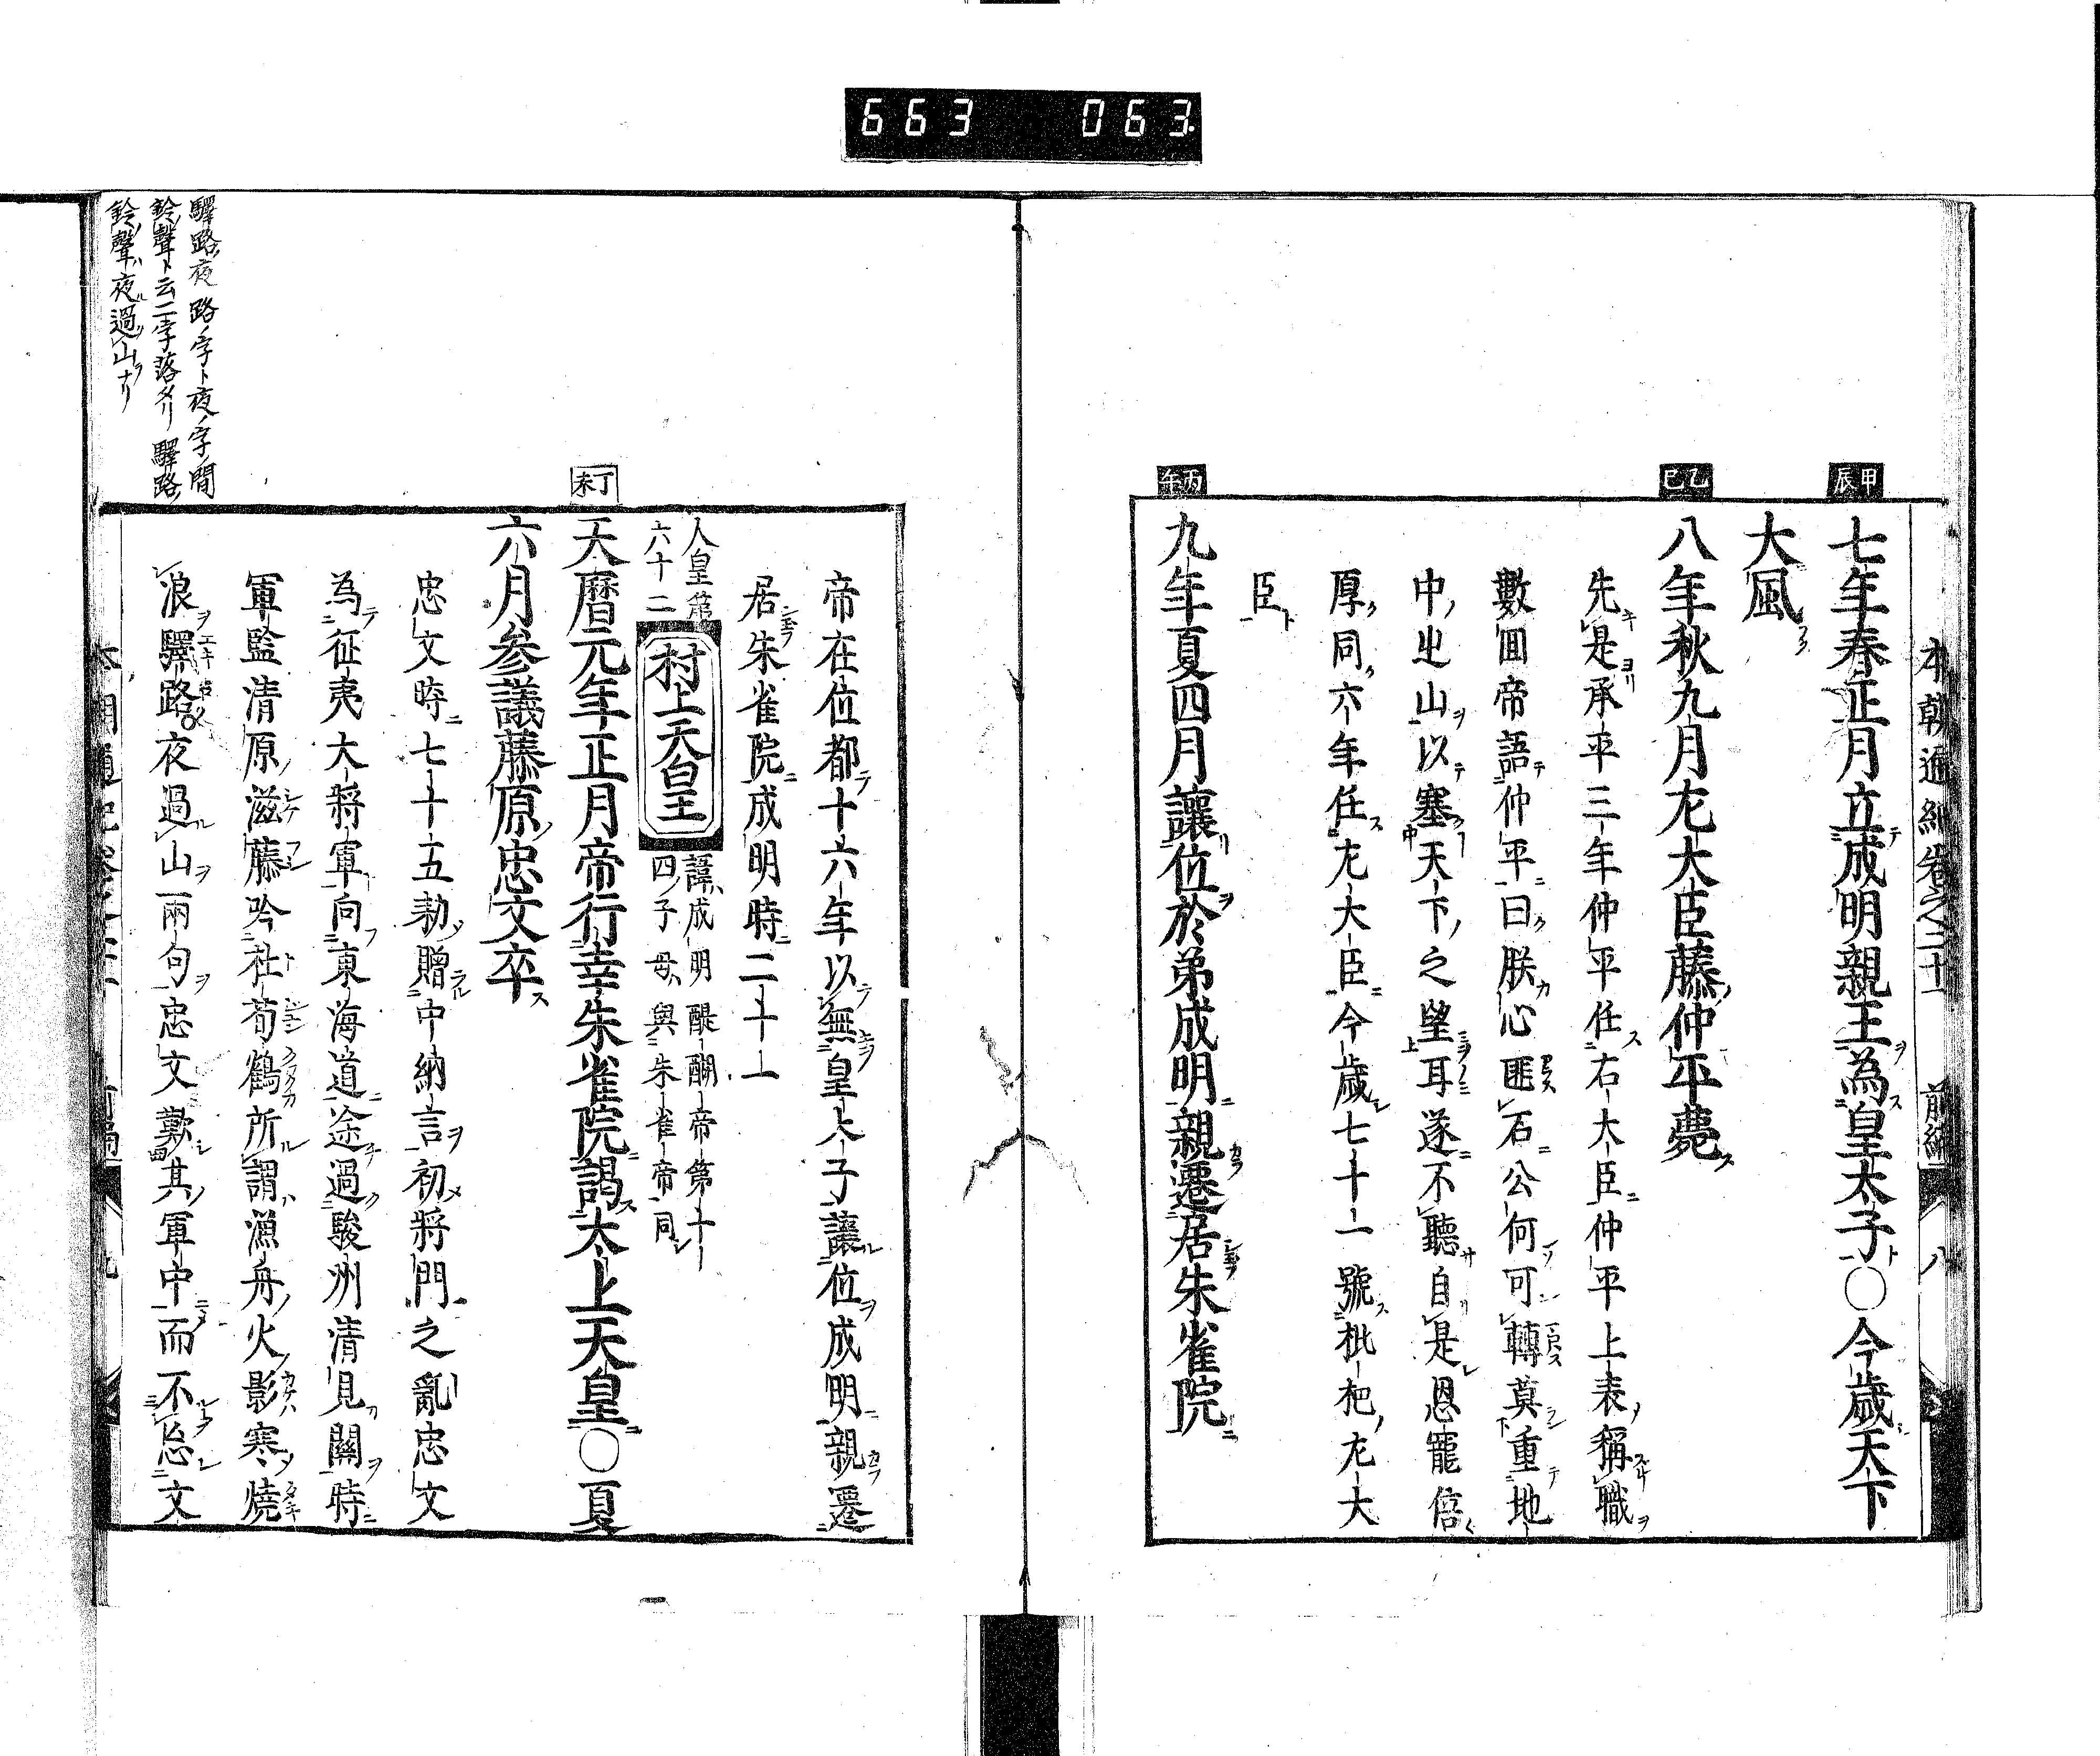 663 063
本朝通紀卷之二十 前編 八
甲辰
七年春正月立成明親王為皇太子○今歳天下
大風
乙巳
八年秋九月左大臣藤仲平薨
先是承平三年仲平任右大臣仲平上表稱職
數回帝語仲平曰朕心匪石公何可轉莫重地
中之山以塞天下之望耳遂不聽自是恩寵倍
厚同六年任左大臣今歳七十一號枇杷左大
臣
丙午
九年夏四月讓位於弟成明親遷居朱雀院
帝在位都十六年以無皇太子讓位成明親遷
居朱雀院成明時二十一
人皇第六十二
村上天皇
諱成明醍醐帝第十
四子母與朱雀帝同
丁未
天曆元年正月帝行幸朱雀院謁太上天皇○夏
六月参議藤原忠文卒
忠文時七十五勅贈中納言初將門之亂忠文
為征夷大將軍向東海道途過駿州清見關時
軍監清原滋藤吟杜荀鶴所謂漁舟火影寒燒
浪驛路夜過山兩句忠文歎其軍中而不忘文
驛路夜 路ノ字ト夜ノ字ノ間
鈴聲ト云二字落タリ 驛路
鈴聲夜過山ナリ